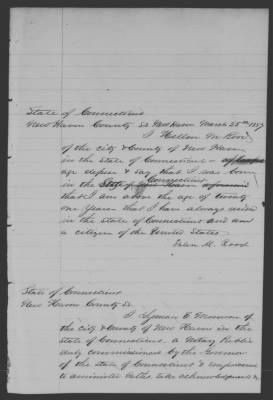 State of Connecticut
New Haven County SS New Haven March 25th 1887
I Hellen M. Rood
of the City & County of New Haven
in the State of Connecticut
age depose & say that I was born
Connecticut
in the State of
that I am above the age of twenty
one years that I have always resided
in the State of Connecticut and am
a citizen of the United States
Helen M. Rood
State of Connecticut
New Haven County SS.
I Lyman E. Munson of
the City & County of New Haven in the
State of Connecticut, a Notary Public
duly commissioned by the Governor
of the State of Connecticut & empowered
to administer Oaths take acknowledgments &